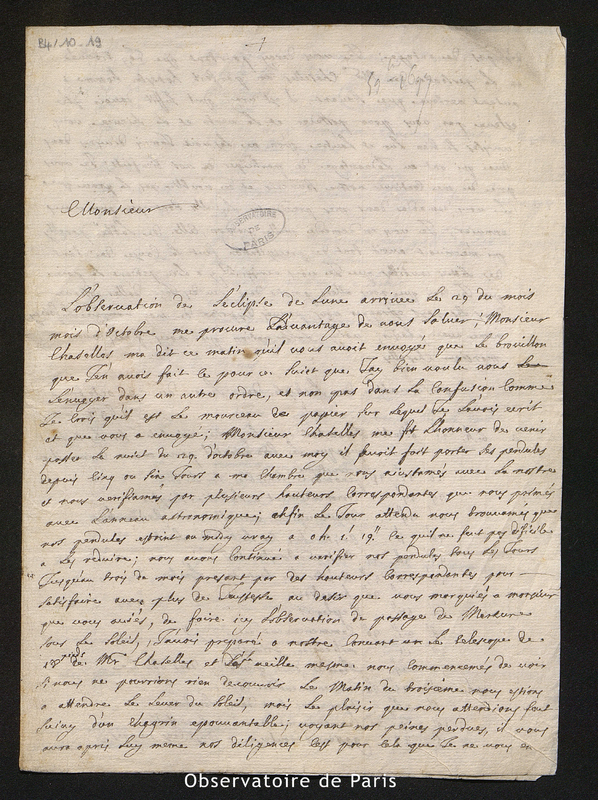 B4/10-19
Monsieur
OBSERVATOIRE DE PARIS
L'observation de l'eclipse de Lune arrivee le 29 du mois
mois d'octobre me procure l'avantage de vous saluer; Monsieur
Chaselles ma dit ce matin qu'il vous avoit envoyé que le brouillon
que J'en avois fait ce pour ce suiet que J'ay bien voulu vous
l'envoyer dans un autre ordre, et non pas dans la confusion comme
Je crois qu'il est le morceau de papier sur lequel Je l'avois ecrit
et que vous a envoyé; Monsieur Chaselles me fit l'honneur de venir
passer la nuict du 29 d'octobre avec moy il avoit fait porter ses pendules
depuis cinq ou six Jours a ma chambre que nous aiustames avec la nostre
et nous verifiames par plusieurs hauteurs correspondantes que nous primes
avec l'anneau astronomique; enfin le Jour attendu nous trouvames que
nos pendules estoint au midy vray a 0h. 1'. 19" ce qu'il ne fut pas dificile
a les reduire; nous avons continué a verifier nos pendules tous les Jours
Jusqu'au trois de mois presant par des hauteurs correspondantes pour
satisfaire avec plus de Justesse au desir que vous marquiés a monsieur
que vous aviés, de faire icy l'observation de passage de Merkure
sous le Soleil, J'avois preparé a nostre couvant un le telescope de
de Mr Chaselles et la veille mesme nous commencemes de voir
si nous ne pourrions rien decouvrir le Matin du troisieme nous estions
a attendre le lever du soleil, mais le plaisir que nous attendions fut
suivy d'un chagrin epouvantable; voyant nos peines perdues, il vous
aura apris luy meme nos diligences c'est pour cela que Je ne vous en
Observatoire de Paris